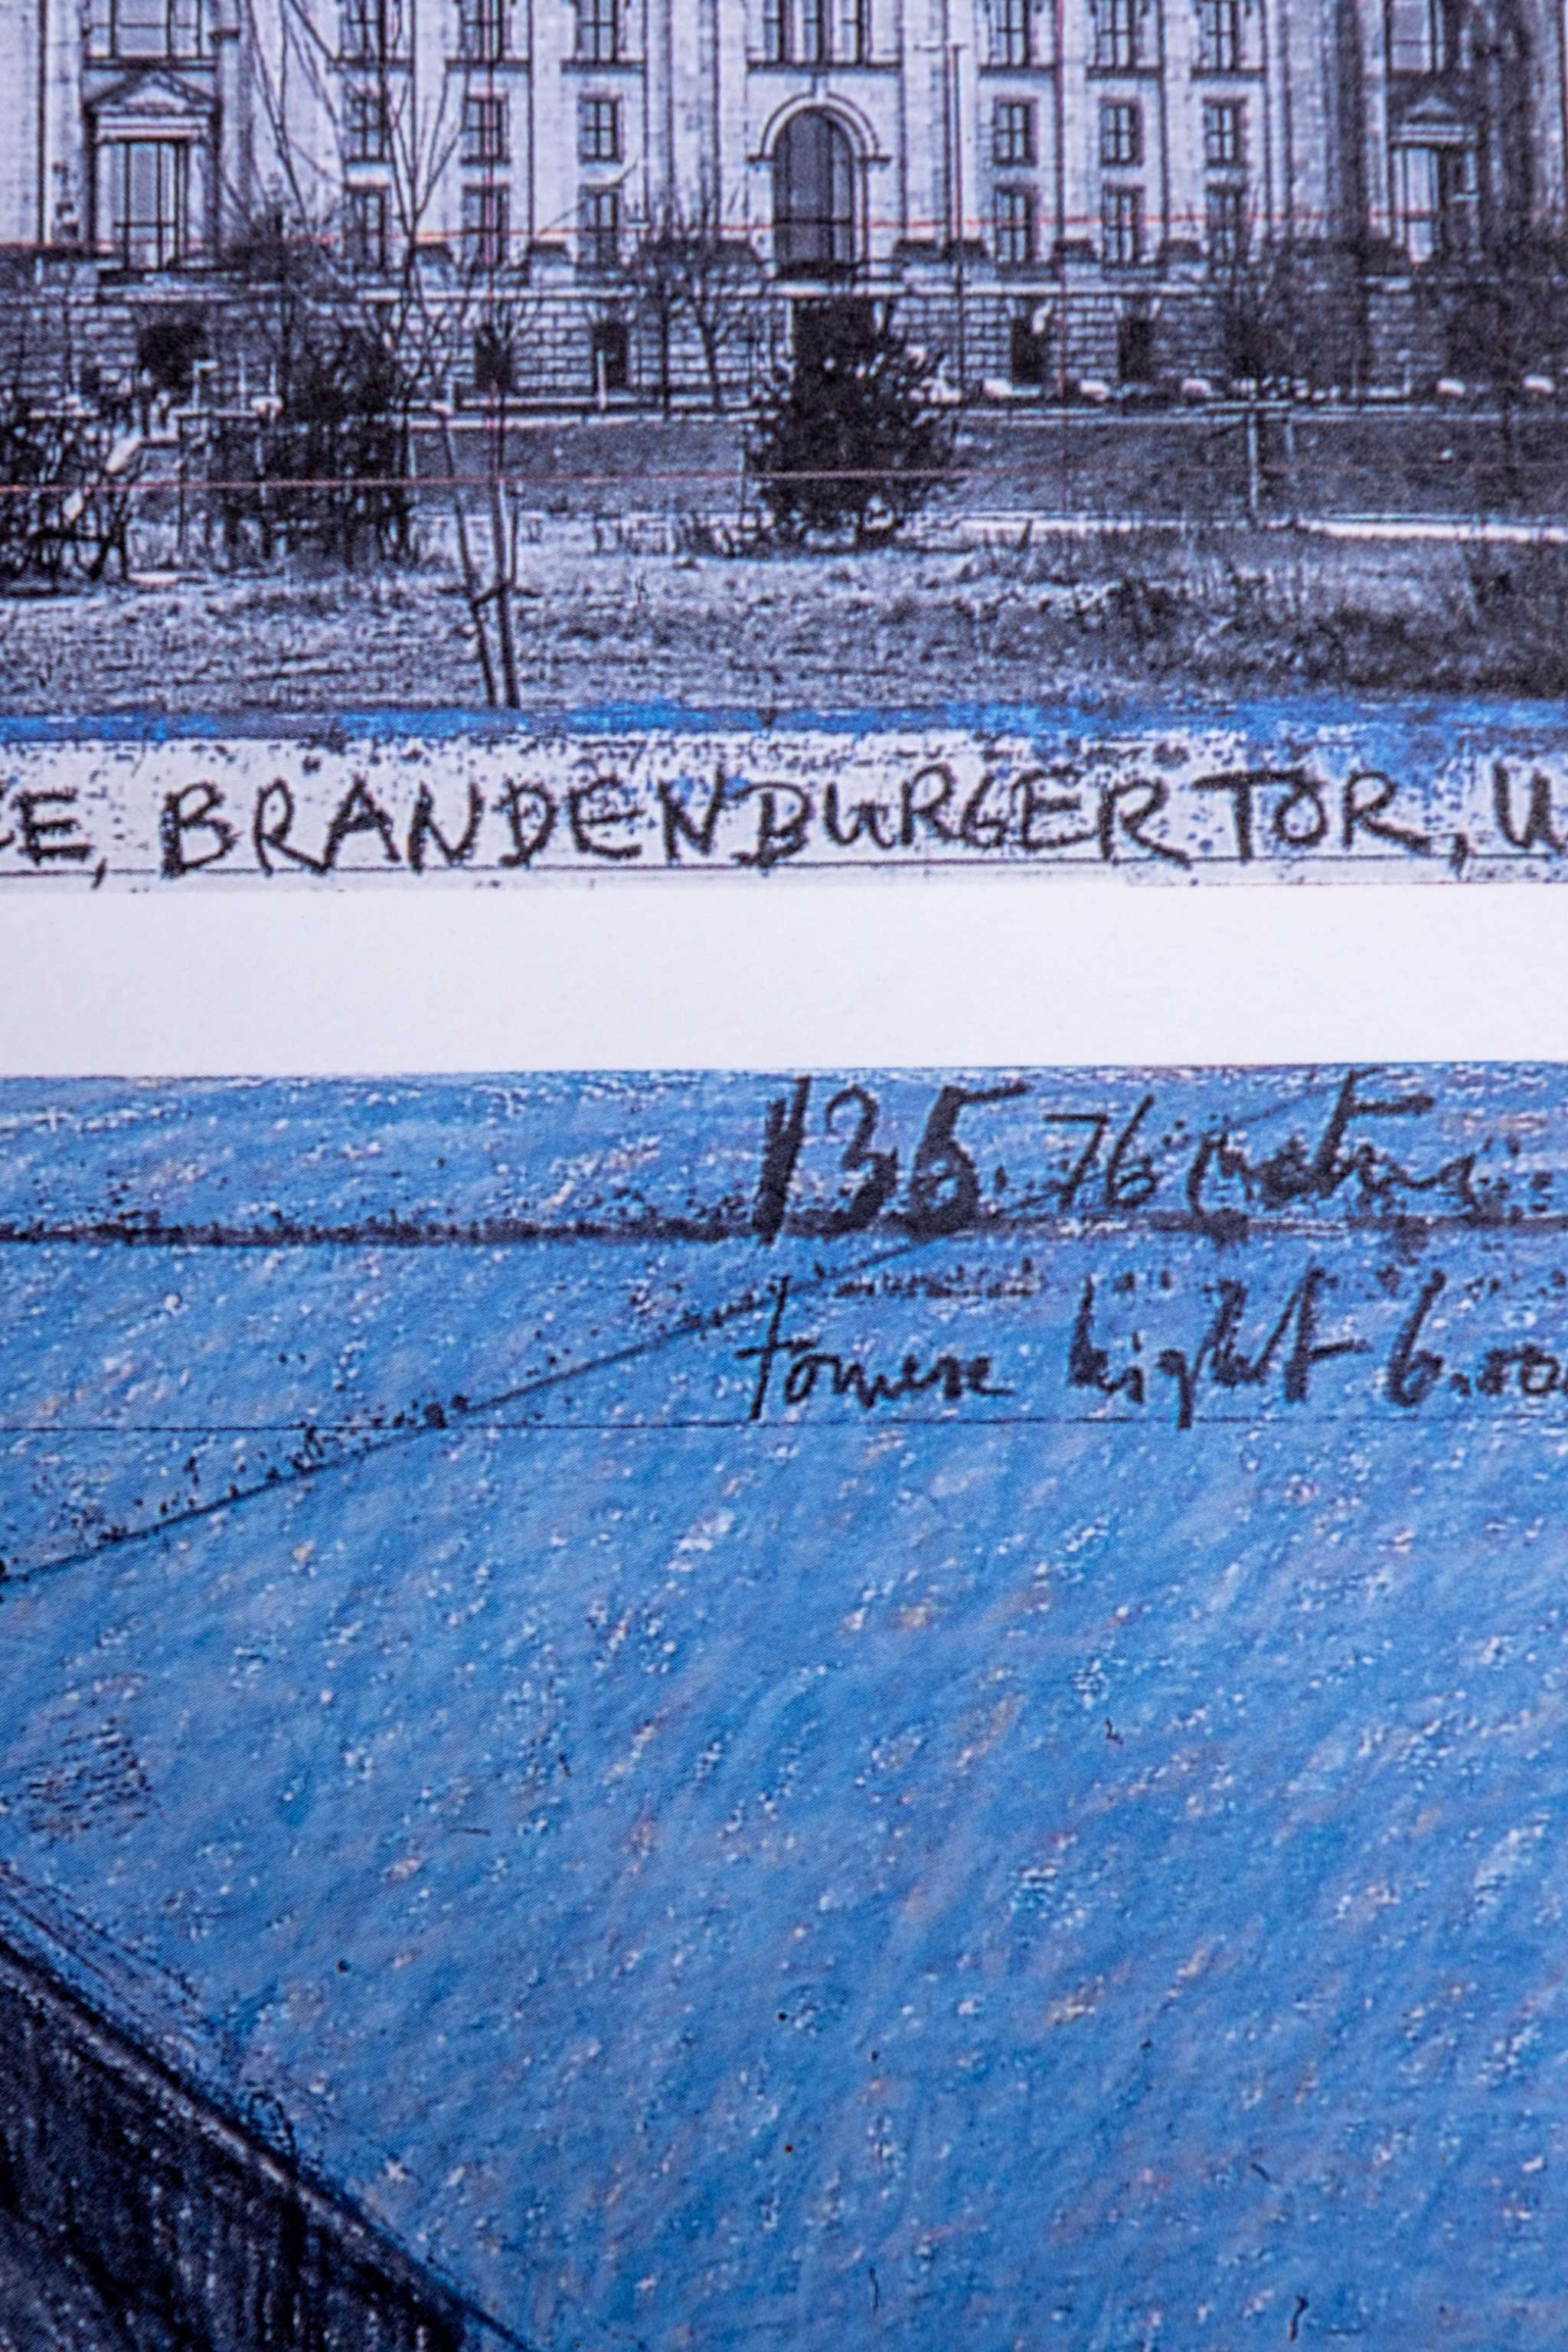 E, BRANDENBURGER TOR, U
135.76 metres
towers hight 6.00